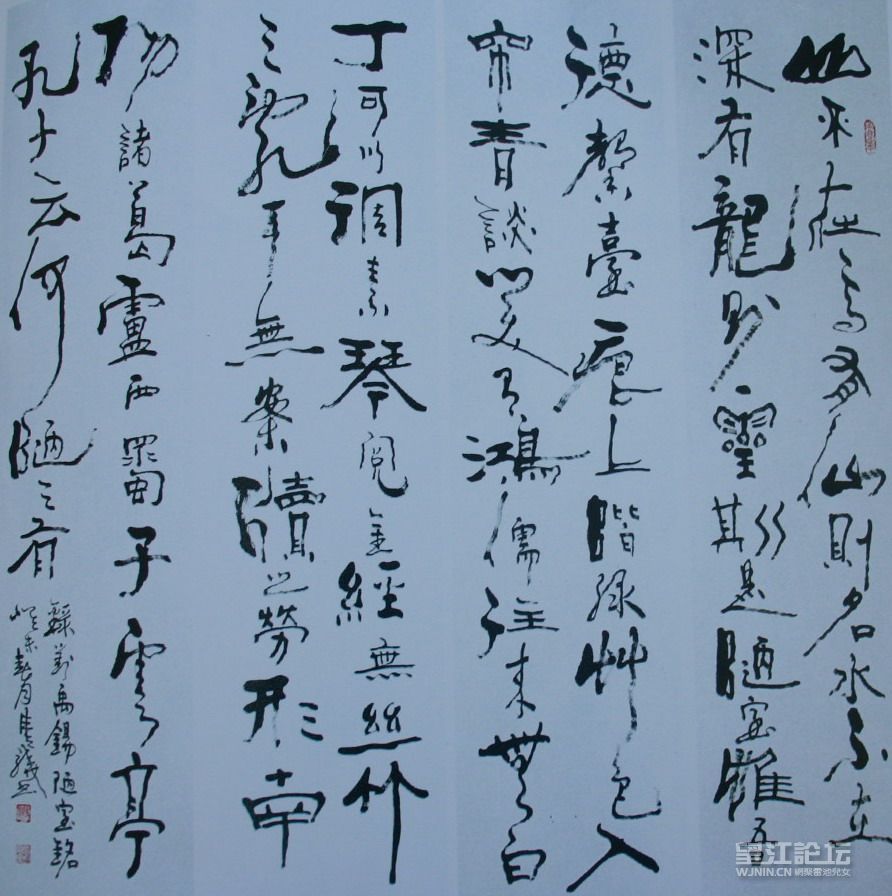 山不在高有仙則名水不在
深有龍則靈斯是陋室惟吾
德馨臺痕上階綠艸色入
帘青談笑有鴻儒往來無白
丁可以調素琴閱金經無絲竹
之亂耳無案牘之勞形南
陽諸葛廬西蜀子雲亭
孔子云何陋之有
錄劉禹錫陋室銘
癸未春月書
望江論坛
WJNIN.CN 網聚雷池兒女